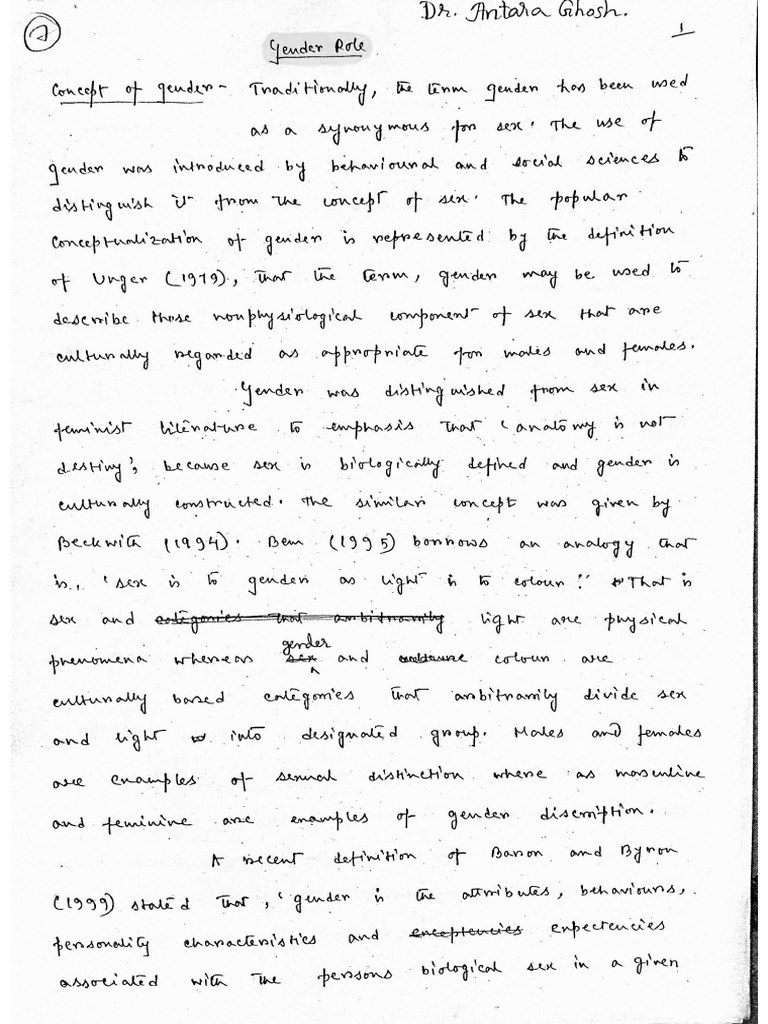 Dr. Antara Ghosh.
7
1
Gender Role
Concept of gender - Traditionally, the term gender has been used
as a synonymous for sex. The use of
gender was introduced by behavioural and social sciences to
distinguish it from the concept of sex. The popular
conceptualization of gender is represented by the definition
of Unger (1979), that the term, gender may be used to
describe those nonphysiological component of sex that are
culturally regarded as appropriate for males and females.
Gender was distinguished from sex in
feminist literature to emphasis that 'anatomy is not
destiny', because sex is biologically defined and gender is
culturally constructed. The similar concept was given by
Beckwith (1994). Bem (1995) borrows an analogy that
is, 'sex is to gender as light is to colour'. That is
sex and categories that arbitrarily light are physical
gender
phenomena whereas sex and culture colour are
culturally based categories that arbitrarily divide sex
and light into designated group. Males and females
are examples of sexual distinction where as masculine
and feminine are examples of gender discription.
A recent definition of Baron and Byron
(1999) stated that, 'gender is the attributes, behaviours,
personality characteristics and exceptencies expectencies
associated with the persons biological sex in a given